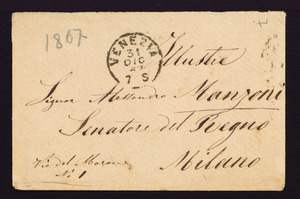 1867
VENEZIA
31
DIC
67
7 S
Illustre
Signor Alessandro Manzoni
Senatore del Regno
Milano
Via del Morone
N. 1